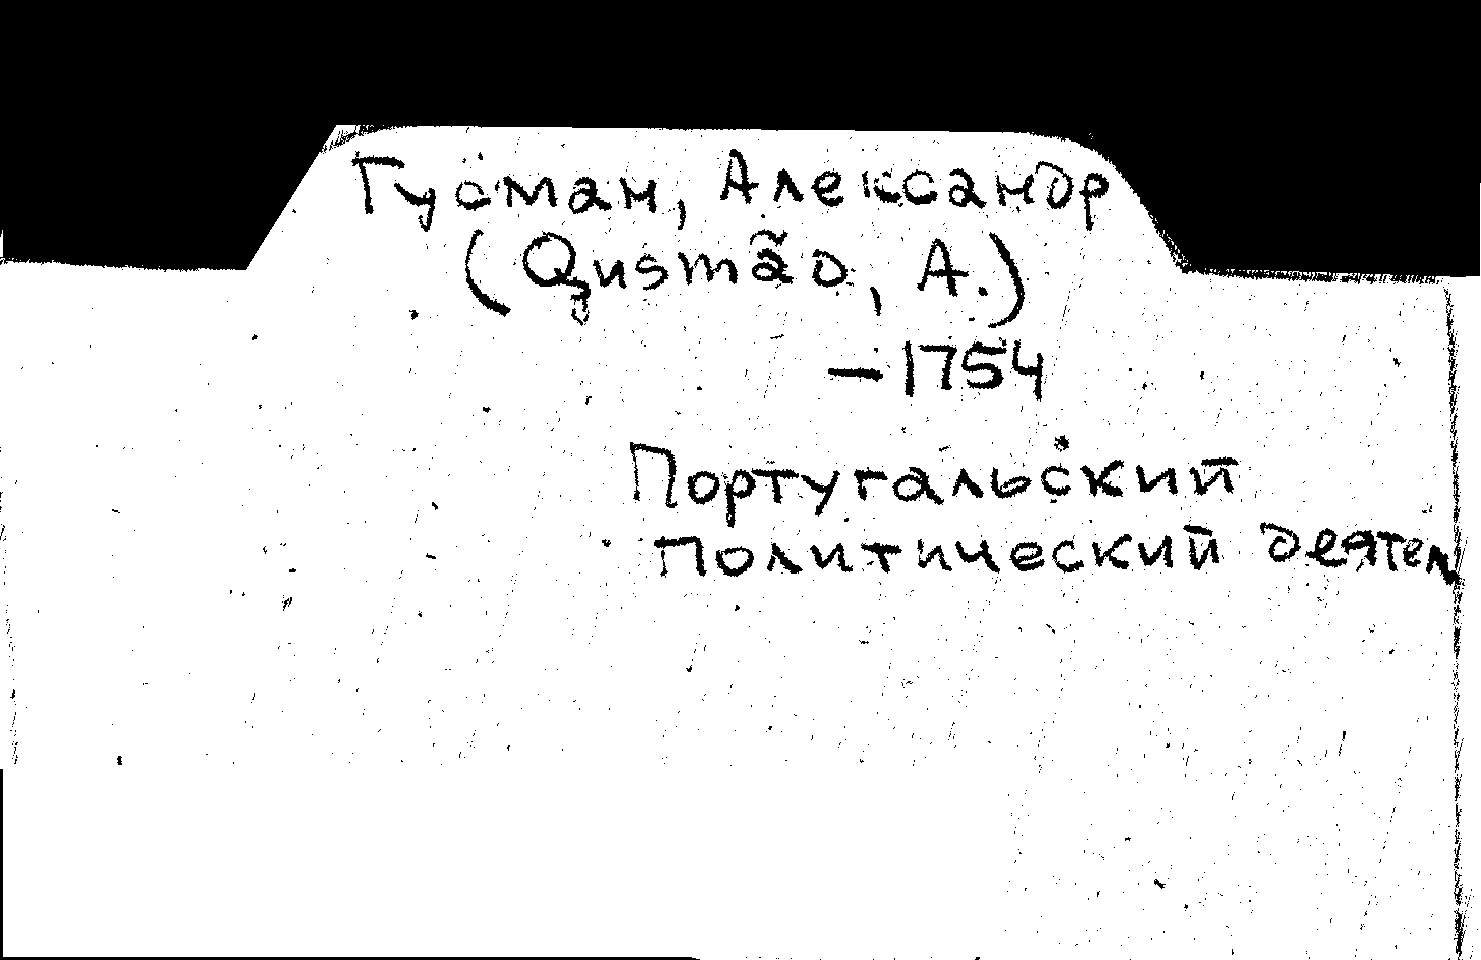 Гусман, Александр
(Gusmão, A.)
– 1754
Португальский
политический деятел